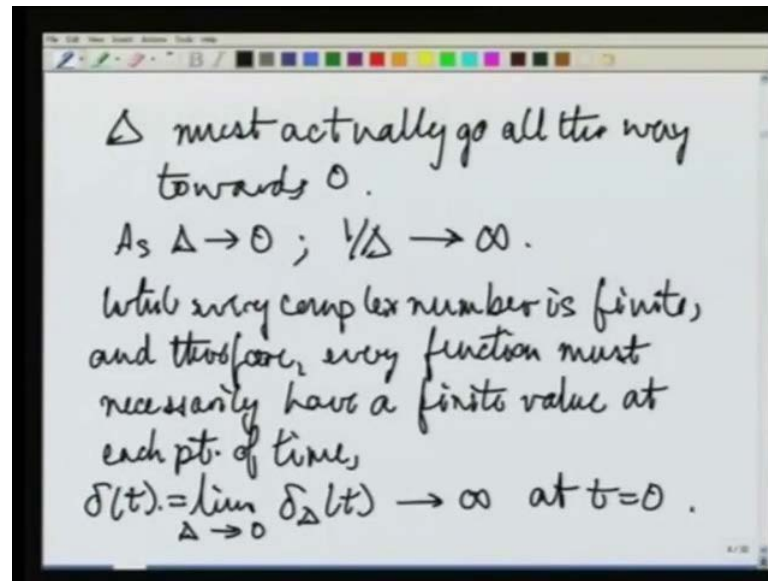 Δ must actually go all the way
towards 0.
As Δ → 0 ; 1/Δ → ∞.
While every complex number is finite,
and therefore, every function must
necessarily have a finite value at
each pt. of time,
δ(t).= lim δ_Δ(t) → ∞ at t=0 .
Δ → 0